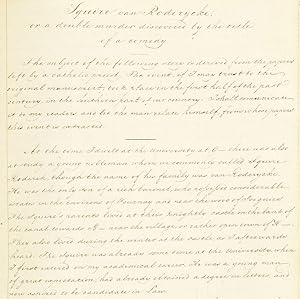 Squire van Roderycke:
or a double murder discovered by the title
of a comedy
The subject of the following story is derived from the papers
left by a catholic priest. The event, if I may trust to the
original manuscript, took place in the first half of the past
century, in the southern part of our country. I shall communicate
it to my readers and let the man relate himself, from whose papers
this event is extracted.
At the time I dwelt at the University at C— there was also
at study a young nobleman whom we commonly called Squire
Roderick, though the name of his family was van Roderycke.
He was the only son of a rich baronet, who possessed considerable
estates in the environs of Tournay and near the
The Squire's parents lived at their knightly castle on the bank of
the canal towards near the village or rather open
They also lived during the winter at the castle as I afterwards
heard. The Squire was already some time at the University when
I first entered on my academical career. He was a young man
of great, had already obtained a degree in letters and
now aspired to be candidate in Law.